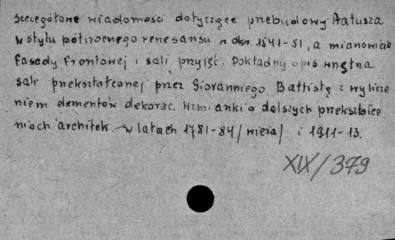 Szczegółowe wiadomości dotyczące przebudowy Ratusza
w stylu północnego renesansu w okr. 1541-51, a mianowicie
fasady frontowej i sali przyjęć. Dokładny opis wnętrza
sali przekształconej przez Giovanniego Battistę z wylicze
niem elementów dekorac. Wzmianki o dalszych przekształce
niach architek. w latach 1781-84 /wieża/ i 1911-13.
XIX/379